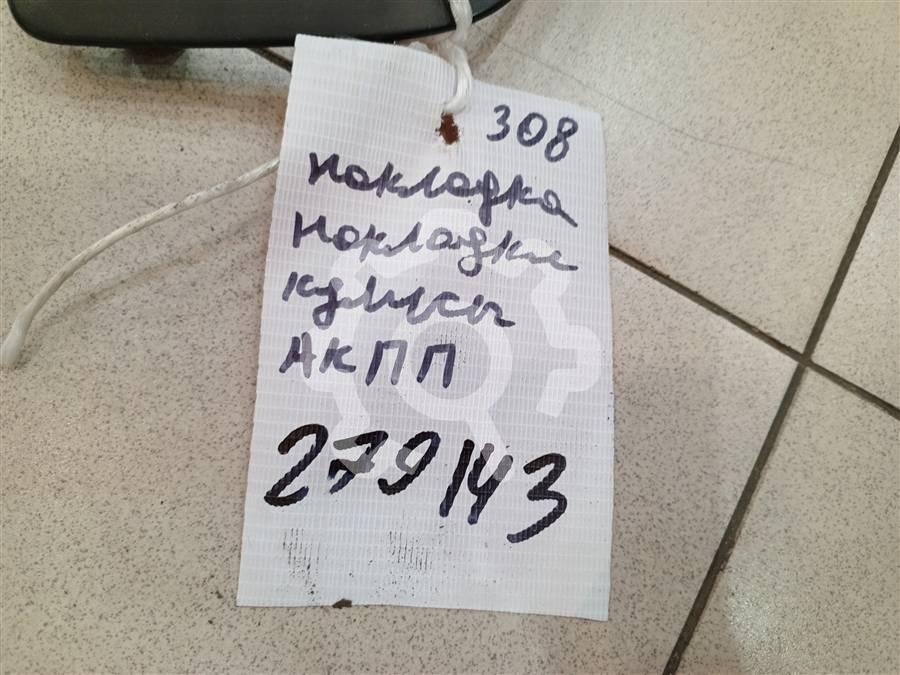 308
накладка
накладки
кулисы
АКПП
279143